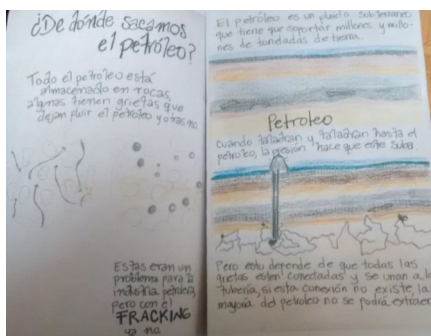 ¿De dónde sacamos
el petróleo?
Todo el petroleo está
almacenado en rocas,
algunas tienen grietas que
dejan fluir el petróleo y otras no
Estas eran un
problema para la
industria petrolera,
pero con el
FRACKING
ya no
El petróleo es un subterraneo
que tiene que soportar millones y millo-
nes de toneladas de tierra.
Petroleo
Cuando taladran y taladran hasta el
petroleo, la presión hace que este suba
Pero esto depende de que todas las
grietas esten conectadas y se unan a la
tubería, si esta conexión no existe, la
mayoría del petroleo no se podrá extraer